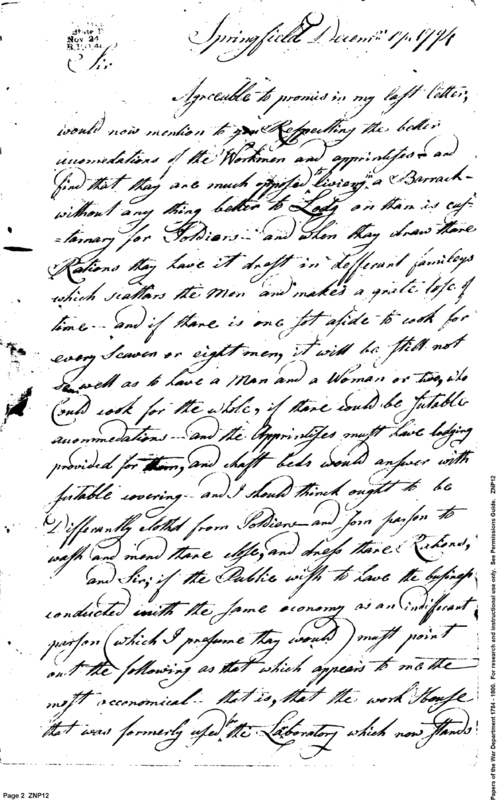 State D
Nov 24
Springfield Decemr 17 1794
Sir
Agreeable to promis in my last letter,
would now mention to you Respecting the better
acomedations of the Workmen and apprintises and
find that thay are much opposed to liveing in a Barrack
without any thing better to Lodg on than is cus=
=tomary for Soldiars and when thay draw thare
Rations thay have it drest in defferant fameleys
which scattars the Men and makes a grate loss of
time and if thare is one sot aside to cook for
every Seaven or eight men, it will be still not
so well as to have a Man and a Woman or two, who
Could cook for the whole, if thare could be sutable
acommedations and the Apprintises must have lodging
provided for them, and chaft beds would answer with
sutable covering and I should thinck ought to be
Differantly cloths from Soldiers and som parson to
wash and mend thare closs, and dress thare Rations,
and Sir, if the Public wish to have the business
conducted with the same economy as an indifferant
parson (which I presume thay would) must point
out the following as that which appears to me the
most oeconomical that is, that the work House
that was formerly used in the Laboratory which now stands
Page 2 ZNP12
Papers of the War Department 1784 - 1800. For research and instructional use only. See Permissions Guide. ZNP12